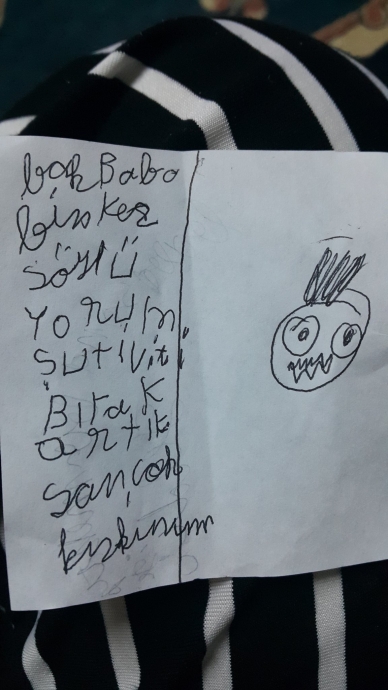 bak Baba
bir kez
söylü
YORUM
SUtIVit
BIrak
artık
sançok
kızkınım